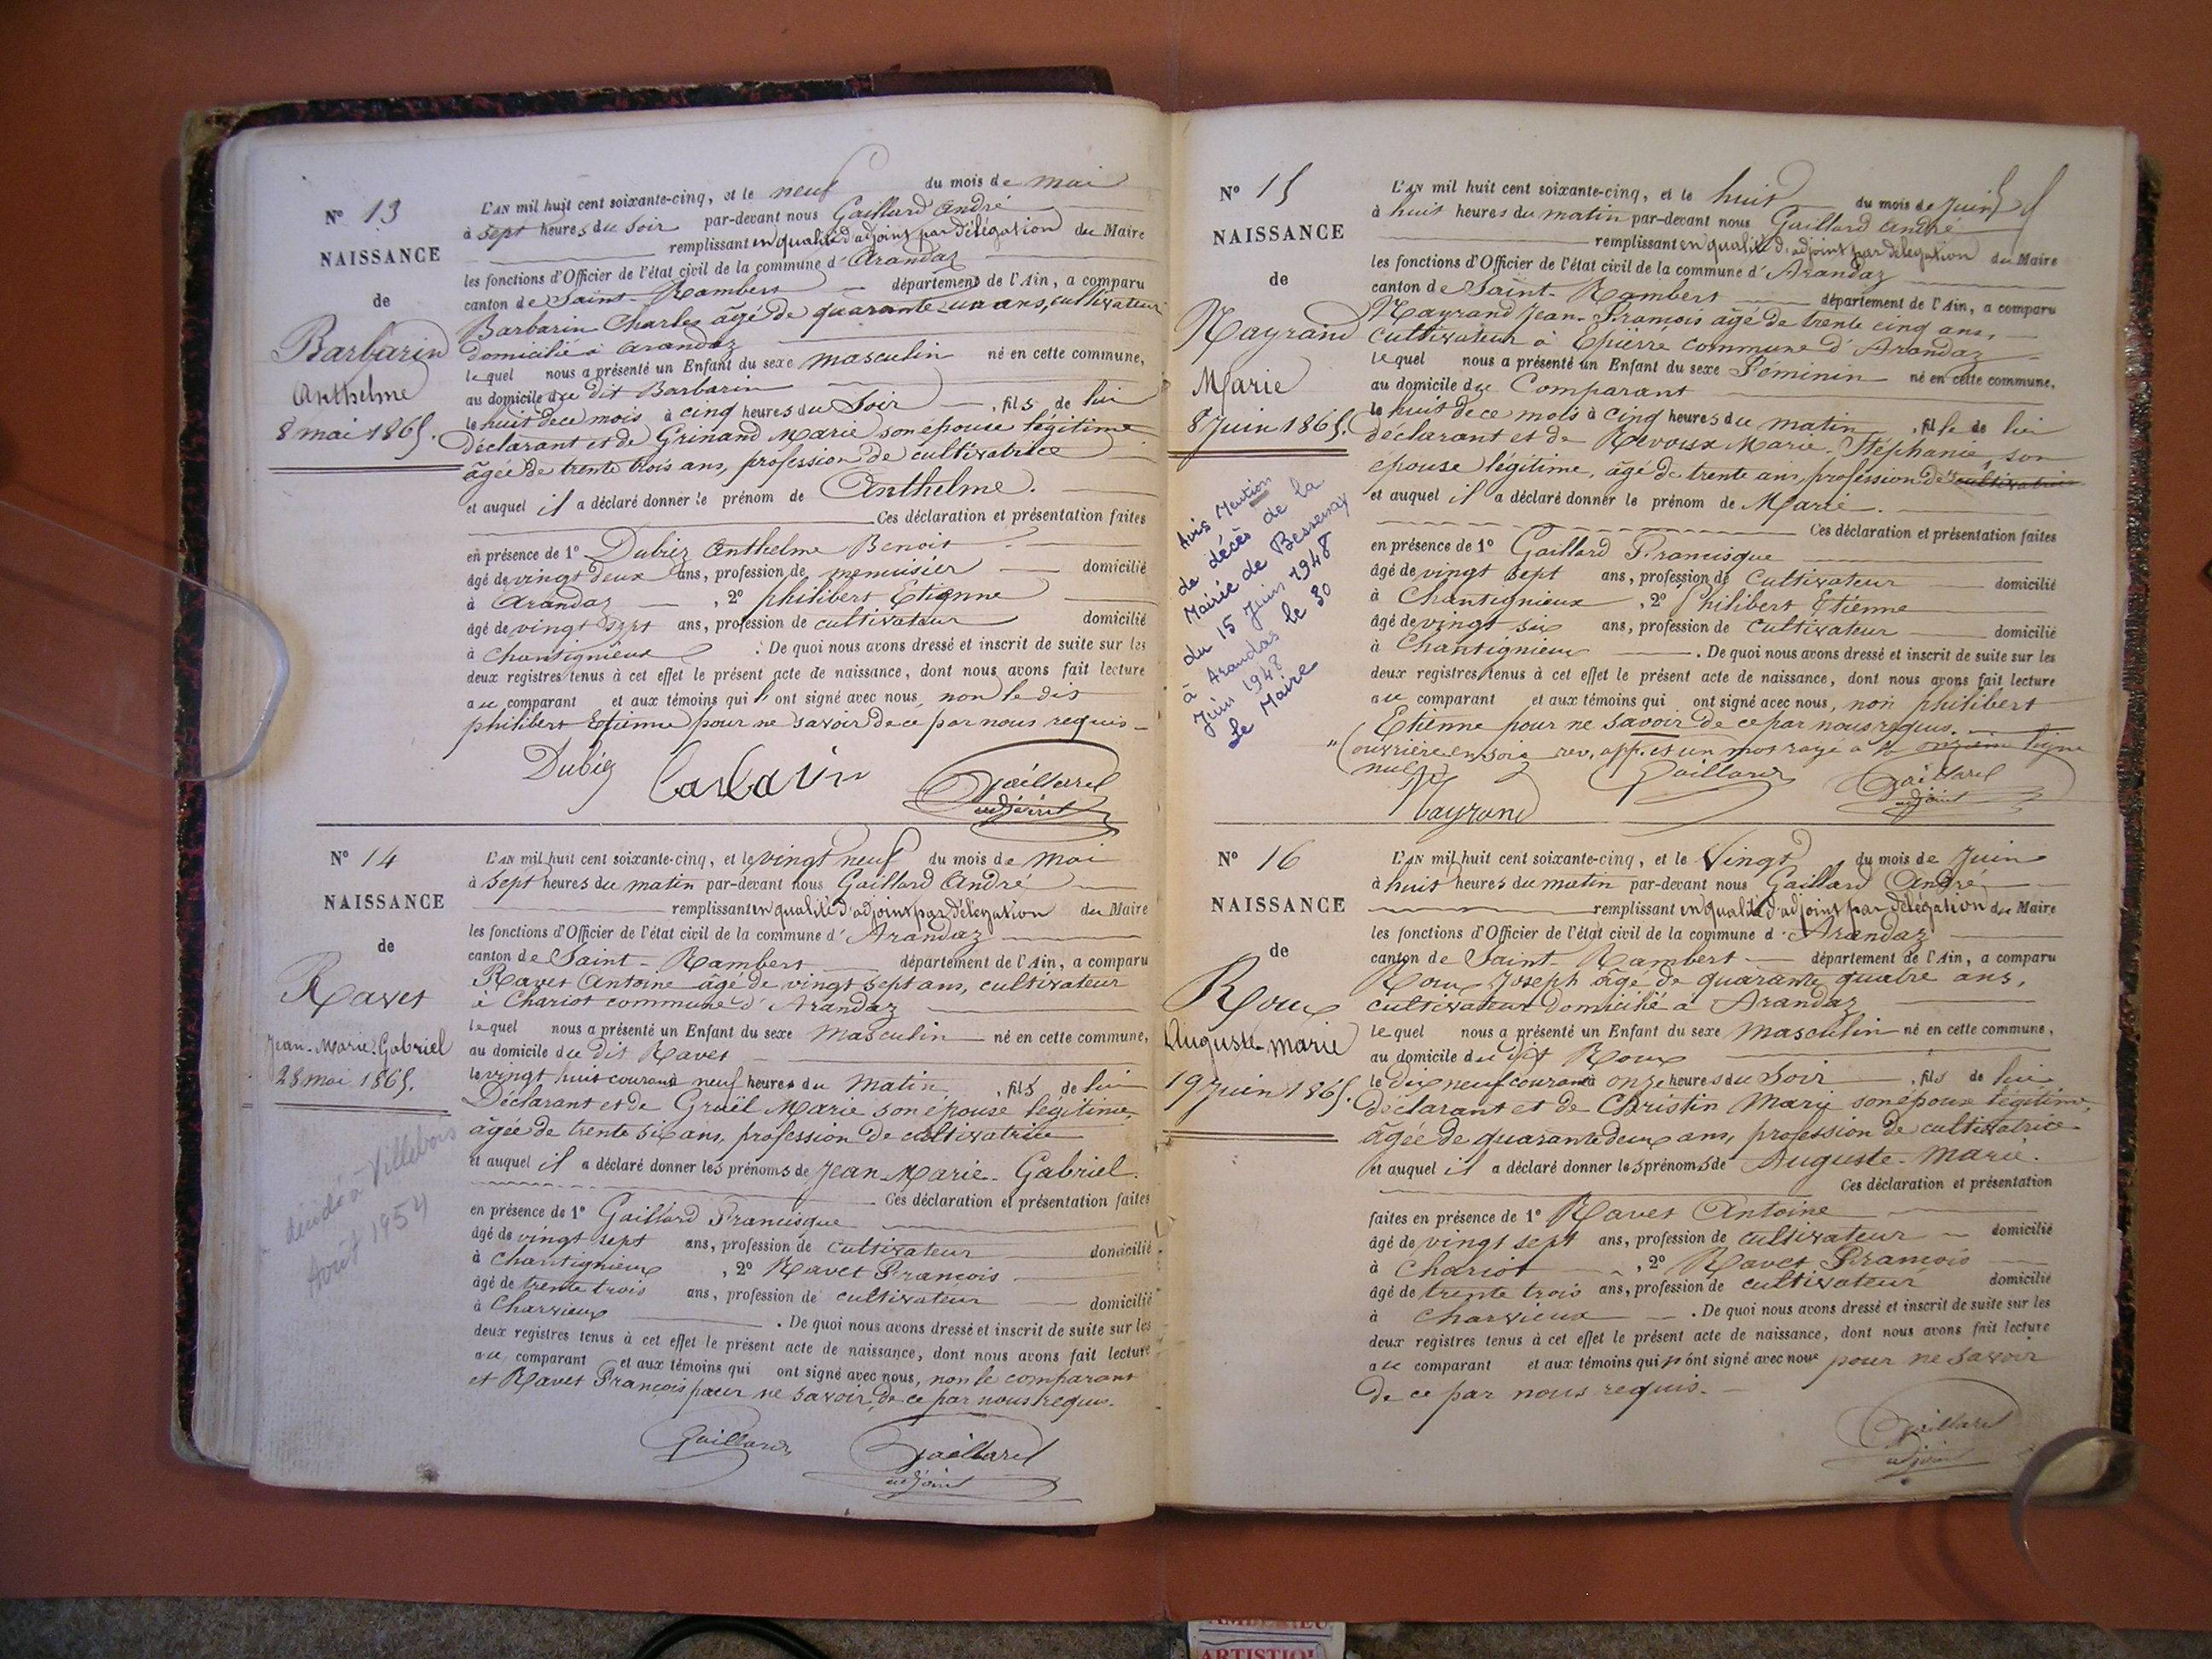 N° 13
NAISSANCE
de
Barbarin
Anthelme
8 mai 1865.
L'AN mil huit cent soixante-cinq, et le neuf du mois de mai
à sept heures du Soir par-devant nous Gaillard André
remplissant en qualité d'adjoint par délégation du Maire
les fonctions d'Officier de l'état civil de la commune d'Arandaz
canton de Saint-Rambert département de l'Ain, a comparu
Barbarin Charles âgé de quarante un ans, cultivateur
domicilié à Arandaz
lequel nous a présenté un Enfant du sexe masculin né en cette commune,
au domicile du dit Barbarin
le huit de ce mois à cinq heures du Soir, fils de lui
déclarant et de Grinand Marie son épouse légitime
âgée de trente trois ans, profession de cultivatrice
et auquel il a déclaré donner le prénom de Anthelme.
Ces déclaration et présentation faites
en présence de 1° Dubiez Anthelme Benoit
âgé de vingt deux ans, profession de menuisier domicilié
à Arandaz, 2° philibert Etienne
âgé de vingt sept ans, profession de cultivateur domicilié
à Chantignieux. De quoi nous avons dressé et inscrit de suite sur les
deux registres tenus à cet effet le présent acte de naissance, dont nous avons fait lecture
au comparant et aux témoins qui ont signé avec nous, non le dit
philibert Etienne pour ne savoir de ce par nous requis
Dubiez Barbarin Gaillard
adjoint
N° 14
NAISSANCE
de
Ravet
Jean-Marie-Gabriel
28 mai 1865.
décédé à Villebois
Août 1954
L'AN mil huit cent soixante-cinq, et le vingt neuf du mois de mai
à sept heures du matin par-devant nous Gaillard André
remplissant en qualité d'adjoint par délégation du Maire
les fonctions d'Officier de l'état civil de la commune d'Arandaz
canton de Saint-Rambert département de l'Ain, a comparu
Ravet Antoine âgé de vingt sept ans, cultivateur
à Chariot commune d'Arandaz
lequel nous a présenté un Enfant du sexe Masculin né en cette commune,
au domicile du dit Ravet
le vingt huit courant à neuf heures du Matin, fils de lui
Déclarant et de Gruël Marie son épouse légitime,
âgée de trente six ans, profession de cultivatrice
et auquel il a déclaré donner les prénoms de Jean Marie-Gabriel.
Ces déclaration et présentation faites
en présence de 1° Gaillard Francisque
âgé de vingt sept ans, profession de cultivateur domicilié
à Chantignieux, 2° Ravet François
âgé de trente trois ans, profession de cultivateur domicilié
à Charvieux. De quoi nous avons dressé et inscrit de suite sur les
deux registres tenus à cet effet le présent acte de naissance, dont nous avons fait lecture
au comparant et aux témoins qui ont signé avec nous, non le comparant
et Ravet François pour ne savoir, de ce par nous requis.
Gaillard Gaillard
adjoint
N° 15
NAISSANCE
de
Mayrand
Marie
8 Juin 1865.
Avis Mention
de décès de la
Mairie de Bessenay
du 15 Juin 1948
à Arandas le 30
Juin 1948
Le Maire
L'AN mil huit cent soixante-cinq, et le huit du mois de Juin
à huit heures du matin par-devant nous Gaillard André
remplissant en qualité d'adjoint par délégation du Maire
les fonctions d'Officier de l'état civil de la commune d'Arandaz
canton de Saint-Rambert département de l'Ain, a comparu
Mayrand Jean-François âgé de trente cinq ans,
cultivateur à Epierre commune d'Arandaz
lequel nous a présenté un Enfant du sexe Féminin né en cette commune,
au domicile du Comparant
le huit de ce mois à cinq heures du matin, fille de lui
déclarant et de Revoux Marie-Stéphanie, son
épouse légitime, âgé de trente ans, profession de cultivatrice
et auquel il a déclaré donner le prénom de Marie.
Ces déclaration et présentation faites
en présence de 1° Gaillard Francisque
âgé de vingt sept ans, profession de Cultivateur domicilié
à Chantignieux, 2° Philibert Etienne
âgé de vingt six ans, profession de cultivateur domicilié
à Chantignieux. De quoi nous avons dressé et inscrit de suite sur les
deux registres tenus à cet effet le présent acte de naissance, dont nous avons fait lecture
au comparant et aux témoins qui ont signé avec nous, non philibert
Etienne pour ne savoir de ce par nous requis.
"(ouvrière en soie rev. app. et un mot rayé à la onzième ligne
nul)
Mayrand Gaillard Gaillard
adjoint
N° 16
NAISSANCE
de
Roux
Auguste-marie
19 Juin 1865.
L'AN mil huit cent soixante-cinq, et le Vingt du mois de Juin
à huit heures du matin par-devant nous Gaillard André
remplissant en qualité d'adjoint par délégation du Maire
les fonctions d'Officier de l'état civil de la commune d'Arandaz
canton de Saint-Rambert département de l'Ain, a comparu
Roux Joseph âgé de quarante quatre ans,
cultivateur domicilié à Arandaz
lequel nous a présenté un Enfant du sexe Masculin né en cette commune,
au domicile du dit Roux
le dix neuf courant à onze heures du Soir, fils de lui
déclarant et de Christin Mary son épouse légitime,
âgée de quarante deux ans, profession de cultivatrice
et auquel il a déclaré donner les prénoms de Auguste-Marie.
Ces déclaration et présentation
faites en présence de 1° Ravet Antoine
âgé de vingt sept ans, profession de cultivateur domicilié
à Chariot, 2° Ravet François
âgé de trente trois ans, profession de cultivateur domicilié
à Charvieux. De quoi nous avons dressé et inscrit de suite sur les
deux registres tenus à cet effet le présent acte de naissance, dont nous avons fait lecture
au comparant et aux témoins qui n'ont signé avec nous pour ne savoir
de ce par nous requis.
Gaillard
adjoint